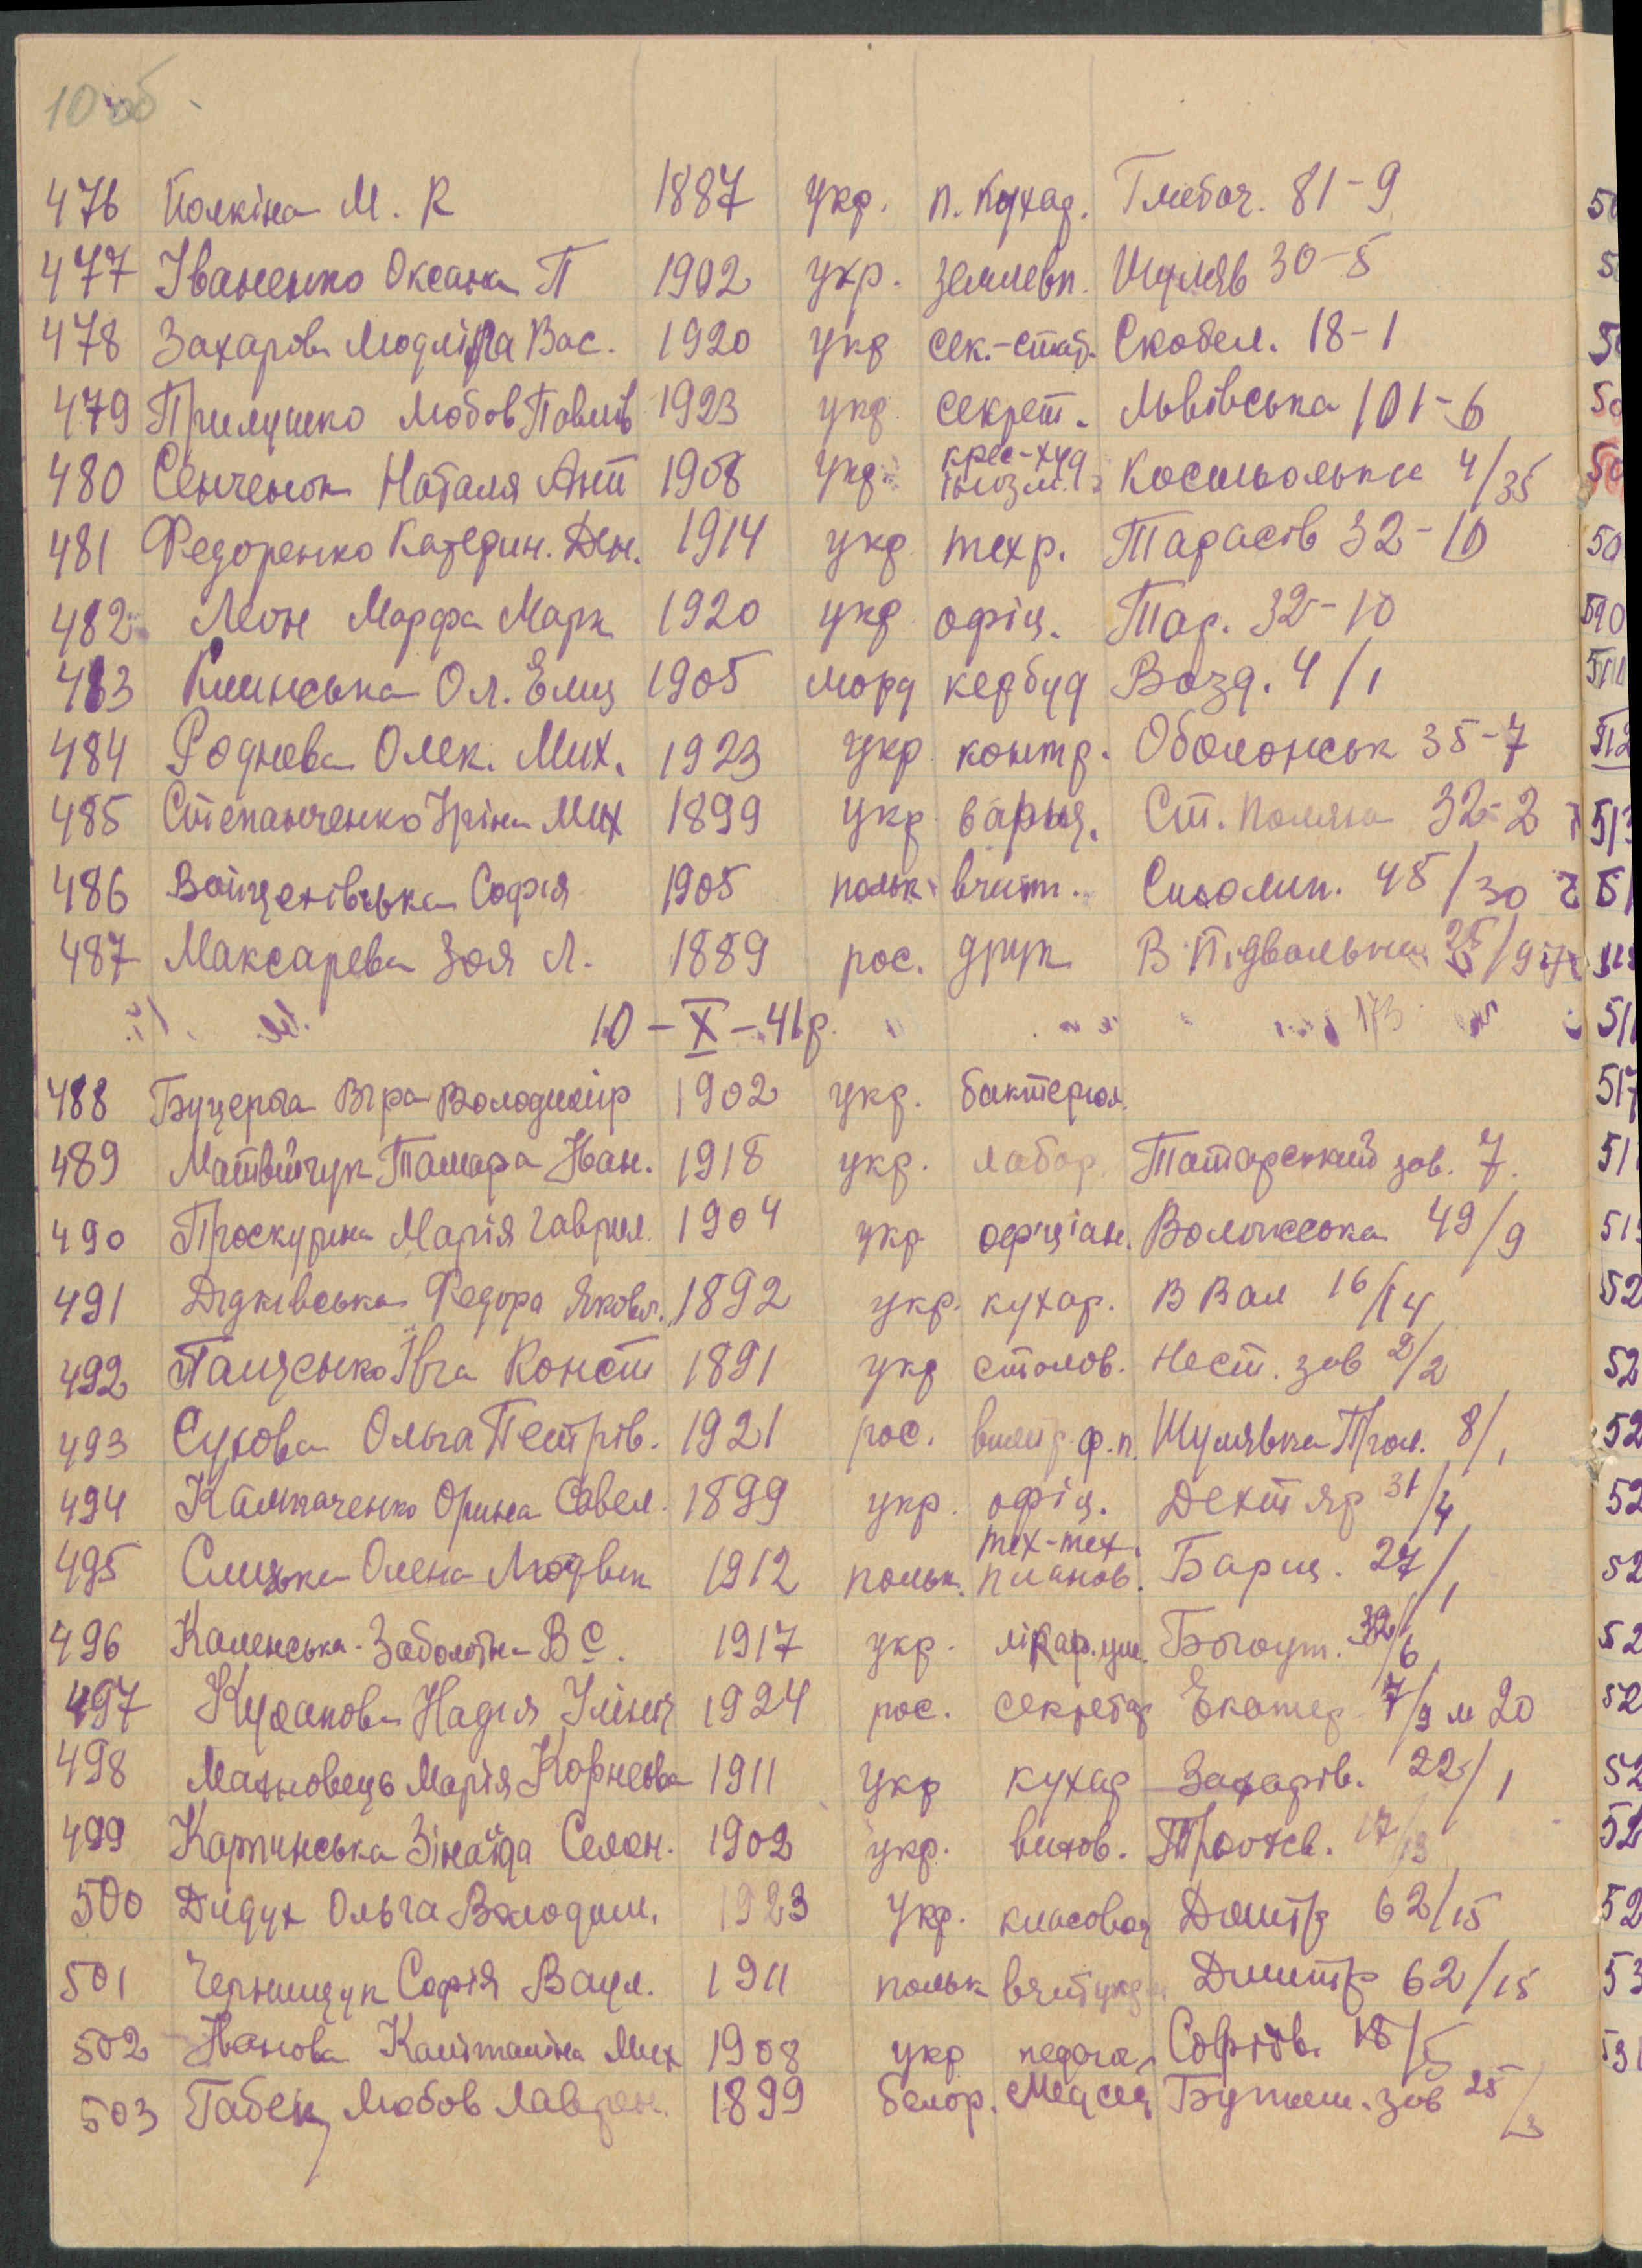 10 об
476 Полкіна М. К 1887 укр. п. кухар. Глибоч. 81-9
477 Іваненко Оксана П 1902 укр. землевп. Шуляв 30-5
478 Захарова Людміла Вас. 1920 укр сек.-стат. Скобел. 18-1
479 Прилушко Любов Павлів 1923 укр. секрет. Львівська 101-6
480 Сенченок Наталя Ант 1908 укр. крес-худ Косміольна 4/35
481 Федоренко Катерин. Ден. 1914 укр техр. Тарасів 32-10
482 Леон Марфа Марк 1920 укр офіц. Тар. 32-10
483 Клинська Ол. Елиз 1905 морд кербуд Возд. 4/1
484 Роднева Олек. Мих. 1923 укр контр. Оболонськ 35-7
485 Степанченко Іріна Мих 1899 укр. варыц. Ст. Поляна 32-2
486 Войценівська Софія 1905 польк. вчит. 45/30
487 Максарева Зоя Л. 1889 рос. друк В Підвальна
10-X-41р.
488 Буцерога Віра Володимир 1902 укр. бактеріол.
489 Матвійчук Тамара Іван. 1918 укр. лабор. Татарський зав. 7.
490 Проскурина Марія Гаврил. 1904 укр. офіціан. Волоська 49/9
491 Дідківська Федора Яковл. 1892 укр. кухар. В Вал 16/14
492 Пащенко Ївга Конст 1891 укр столов. Нест. зав 2/2
493 Сухова Ольга Петрів. 1921 рос. ф.п. Шулявка Пол. 8/1
494 Калмаченко Орина Савел. 1899 укр. офіц. Дехтяр 31/4
495 Слицька Олена Людвик 1912 польк. тех-тех. планов. Барищ. 27/1
496 Каменська-Заболотна В С. 1917 укр. лікар.ум. Богоут. 32/6
497 Кусакова Надія Ілініч 1924 рос. секретар Екатер 7/9 м 20
498 Махновець Марія Корнеєва 1911 укр кухар Захарів. 22/1
499 Карпинська Зінаїда Семен. 1902 укр. вихов. 17/13
500 Дидух Ольга Володим. 1923 укр. класовод Дмитр 62/15
501 Чернищук Софія Вацл. 1911 польк Дмитр 62/15
502 Іванова Капіталіна Мих 1908 укр педагог Софіїв. 18/5
503 Габец Любов Лаврен. 1899 белор. Медсес Бутыш. зав 25/3